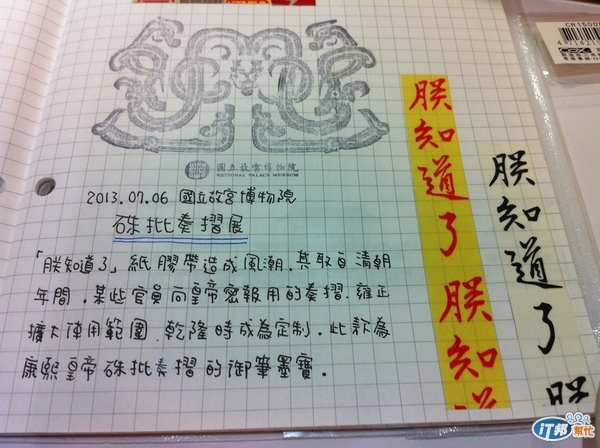 國立故宮博物院
NATIONAL PALACE MUSEUM
2013.07.06 國立故宮博物院
硃批奏摺展
「朕知道了」紙膠帶造成風潮.其取自清朝
年間.某些官員向皇帝密報用的奏摺.雍正
擴大使用範圍.乾隆時成為定制.此款為
康熙皇帝硃批奏摺的御筆墨寶.
朕知道了朕知道
朕知道了朕
iT邦幫忙